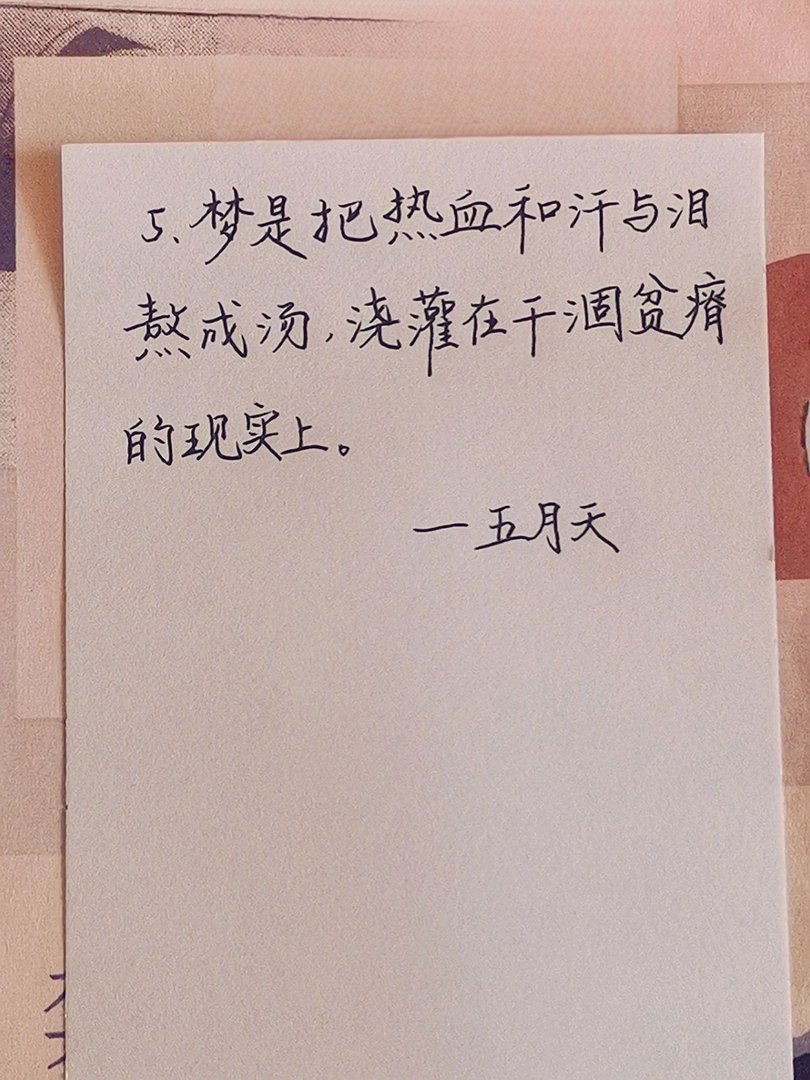 5、梦是把热血和汗与泪
熬成汤,浇灌在干涸贫瘠
的现实上。
—五月天